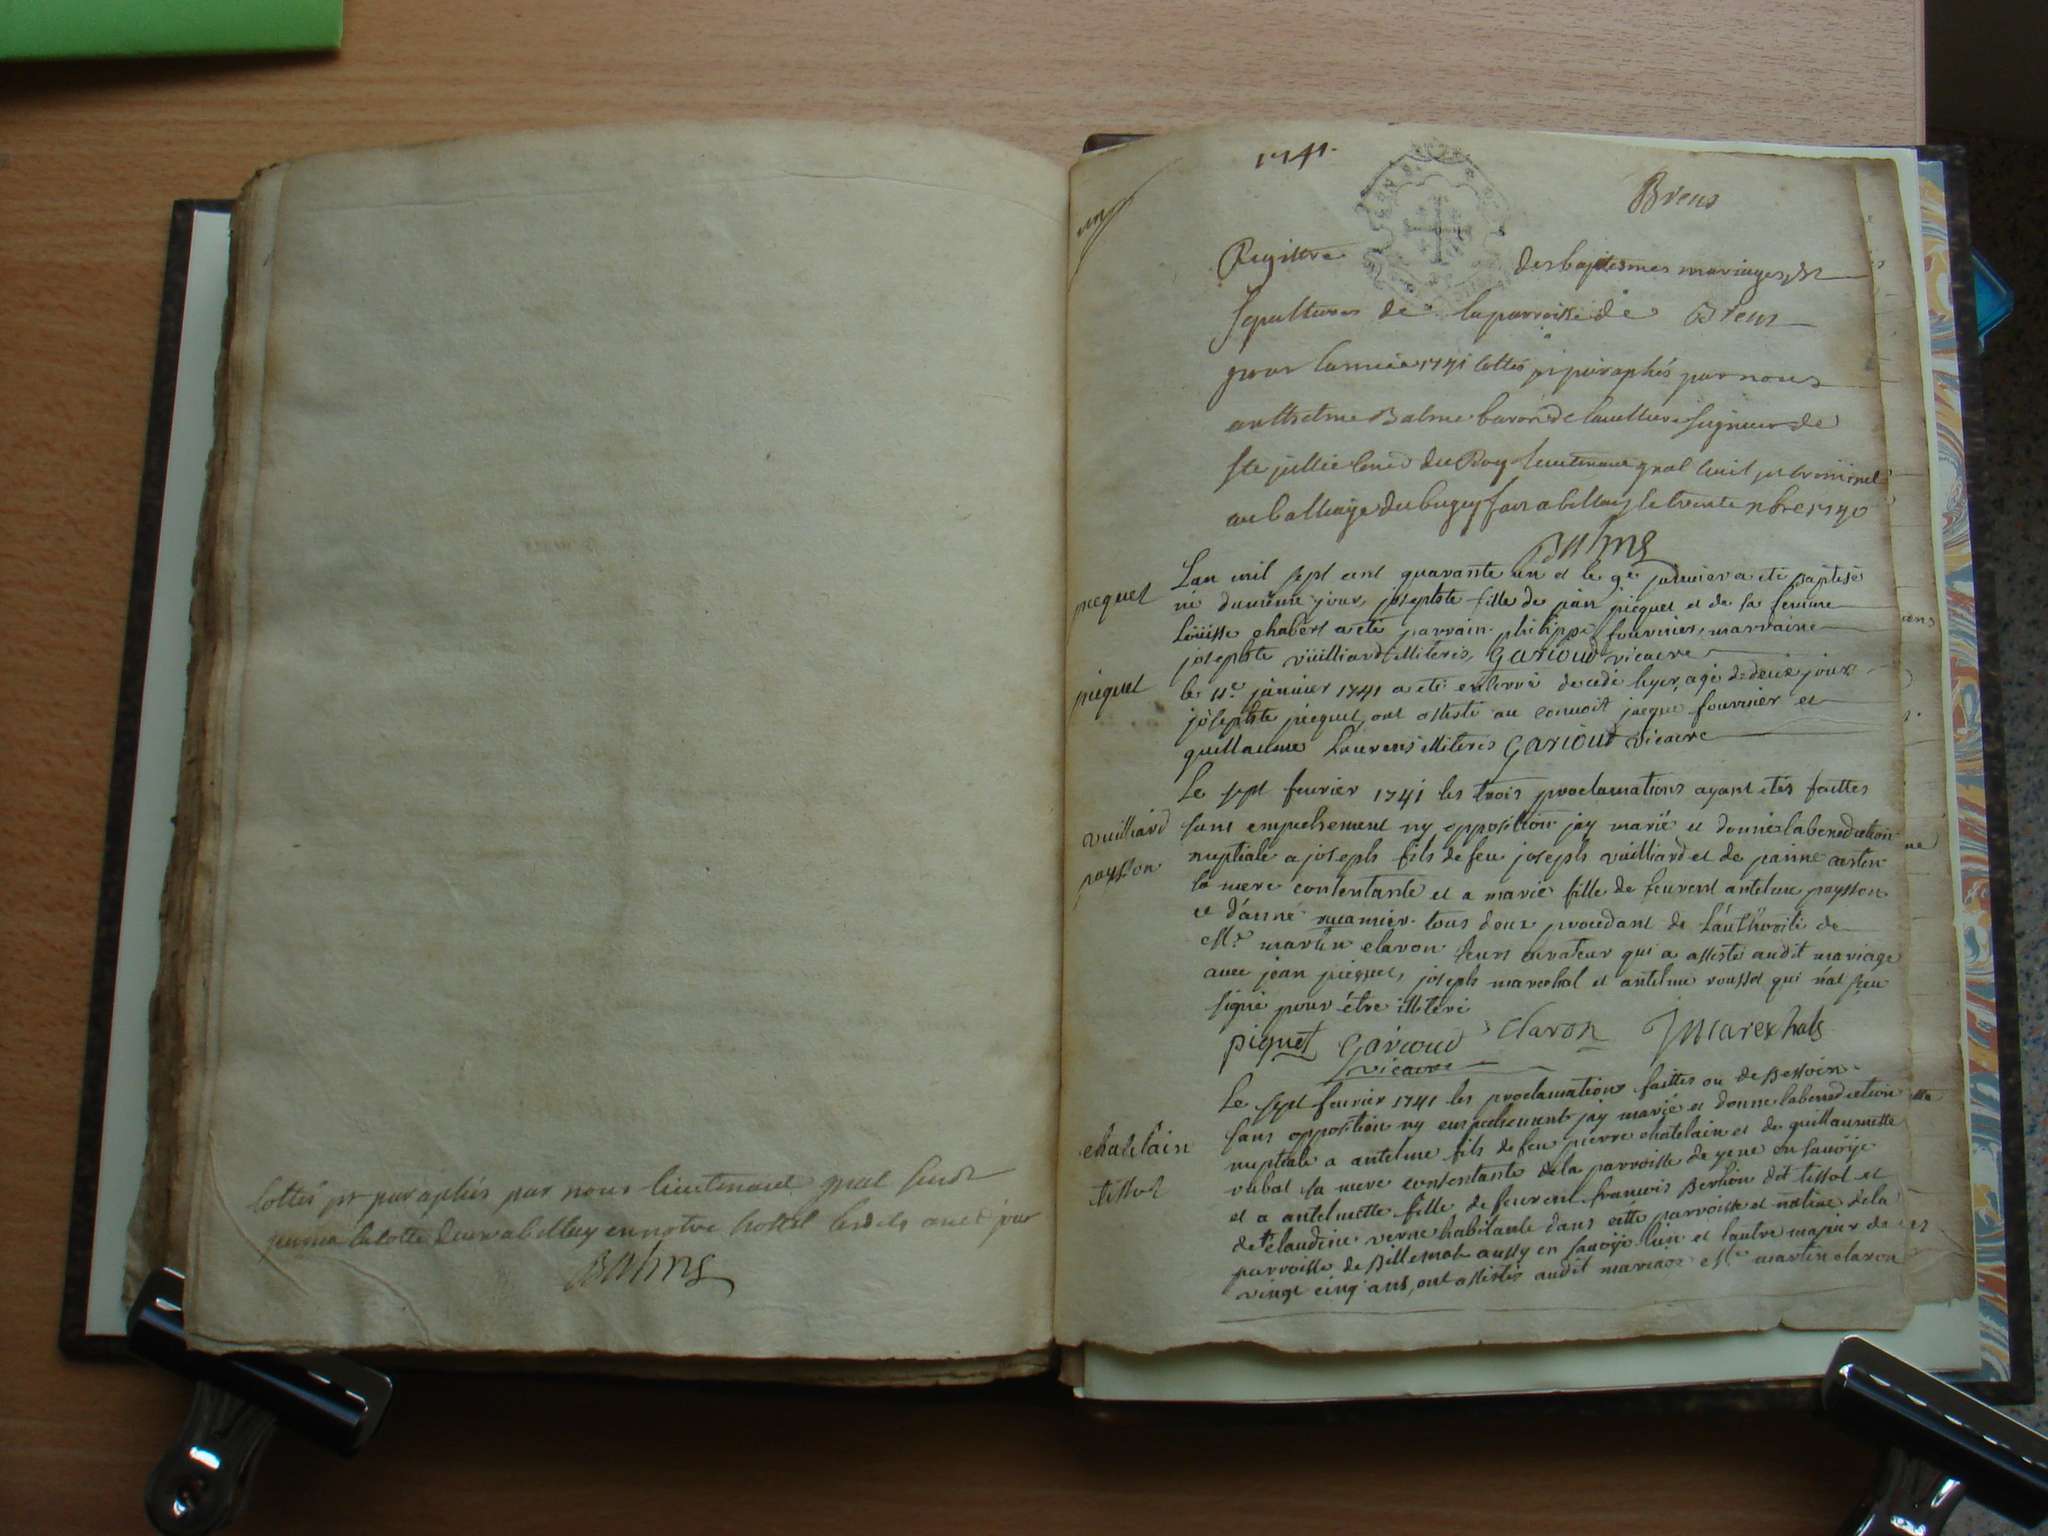 cottés et paraphés par nous lieutenant gnal susdt
premiere cotte deux a belley en notre hostel lesdits an et jour
Balme
1741.
un
Brens
Registre des baptesmes mariages, et
sepultures de la parroisse de Brens
pour lannée 1741 cottés et paraphés par nous
anthelme Balme baron de seigneur de
ste jullie du Roy lieutenant gnal civil et criminel
au balliage du bugey fait a belley le trente 9bre 1740
Balme
picquet
Lan mil sept cent quarante un et le 9e janvier a eté baptisé
né du même jour, josephte fille de jean picquet et de sa femme
Loüisse chabert a eté parrain philippe fournier, marraine
josephte vuilliard illiteres, Garioud vicaire
picquet
le 11e janvier 1741 a eté enterré decedé hyer, agé de deux jour
josephte picquet, ont assisté au convoit jacque fournier et
guillaume Laurens illiteres Garioud vicaire
vuilliard
paysson
Le sept fevrier 1741 les trois proclamations ayant etés faittes
sans empechement ny opposition jay marié et donné la benediction
nuptiale a joseph fils de feu joseph vuilliard et de janne
la mere contentante et a marie fille de feu vent antelme paysson
et d'anne tous deux procedant de L'authorité de
Me martin claron leurs curateur qui a assisté audit mariage
avec jean picquet, joseph marechal et antelme roussot qui n'at sceu
signé pour étre illiteré
piquet Garioud claron J marexhals
vicaire
chatelain
tissot
Le sept fevrier 1741 les proclamations faittes ou de Bessoin
sans opposition ny empechement jay marié et donné la benediction
nuptiale a antelme fils de feu pierre chatelain et de guillaumette
rubat sa mere contentante de la parroisse de yene en savoÿe
et a antelmette fille de feu vent francois Berlion dit tissot et
de claudine verne habitante dans cette parroisse et native de la
parroisse de Billemat aussy en savoÿe lun et lautre majeur de
vingt cinq ans, ont assistés audit mariage Me martin claron